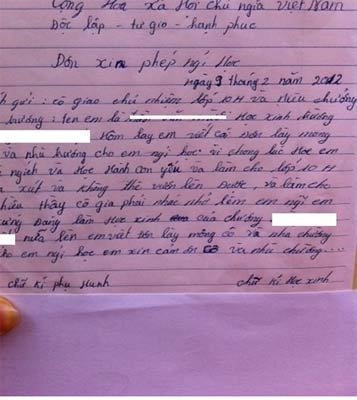 Cộng Hoa xã Hơi chủ ngĩa việt Nam
Độc lập - tự gio - hạnh phuc
Dơn xin phép ngỉ Học
Ngày 9 tháng 2 năm 2012
gửi : cô giao chủ nhiệm lớp 10 H và Nhà chường
chường : tên em là Học xinh chường
Hôm lay em viết cá Đơn lày mong
và nhà hường cho em ngỉ học vì chong lúc Học em
ngịch và Học Hành cơn yếu và làm cho lớp 10 H
xút và không thể vươn lên Được, và làm cho
thầy cô gia phải nhác nhở lêm em ngĩ em
Đáng làm Học xinh của chường
nữa lên em viết đơn lày mong cô và nha chường
cho em ngỉ học em xin cám ơn cô và nhà chường...
chữ kí phụ Hunh
chữ kí Học xinh